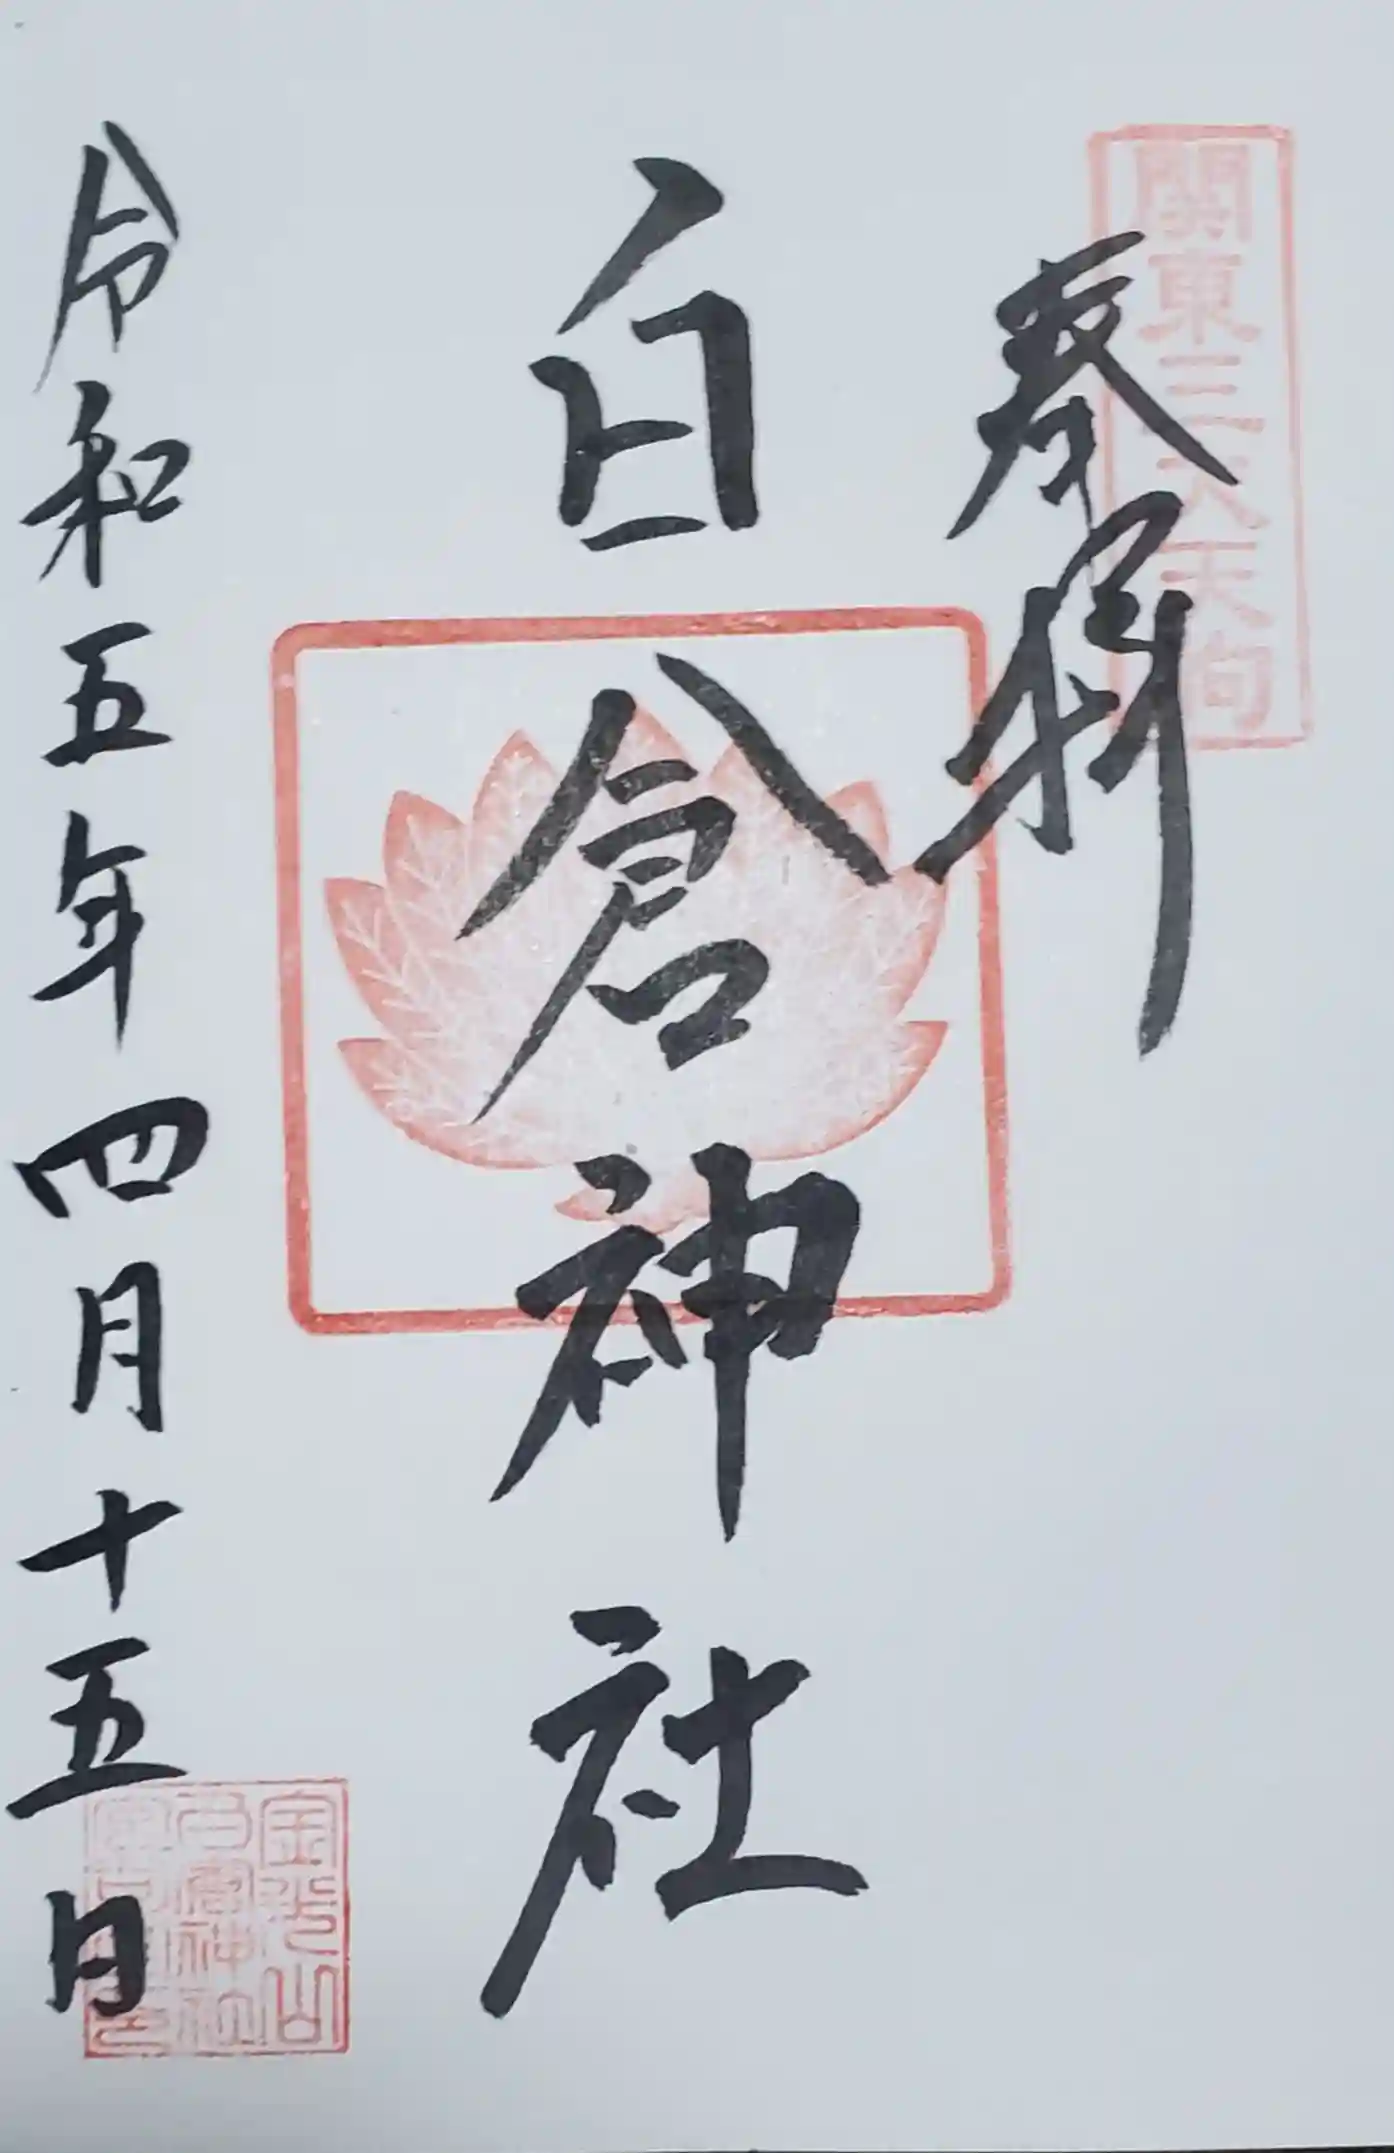 関東三大天狗
奉拝
白倉神社
令和五年四月十五日
金光山
白倉神社